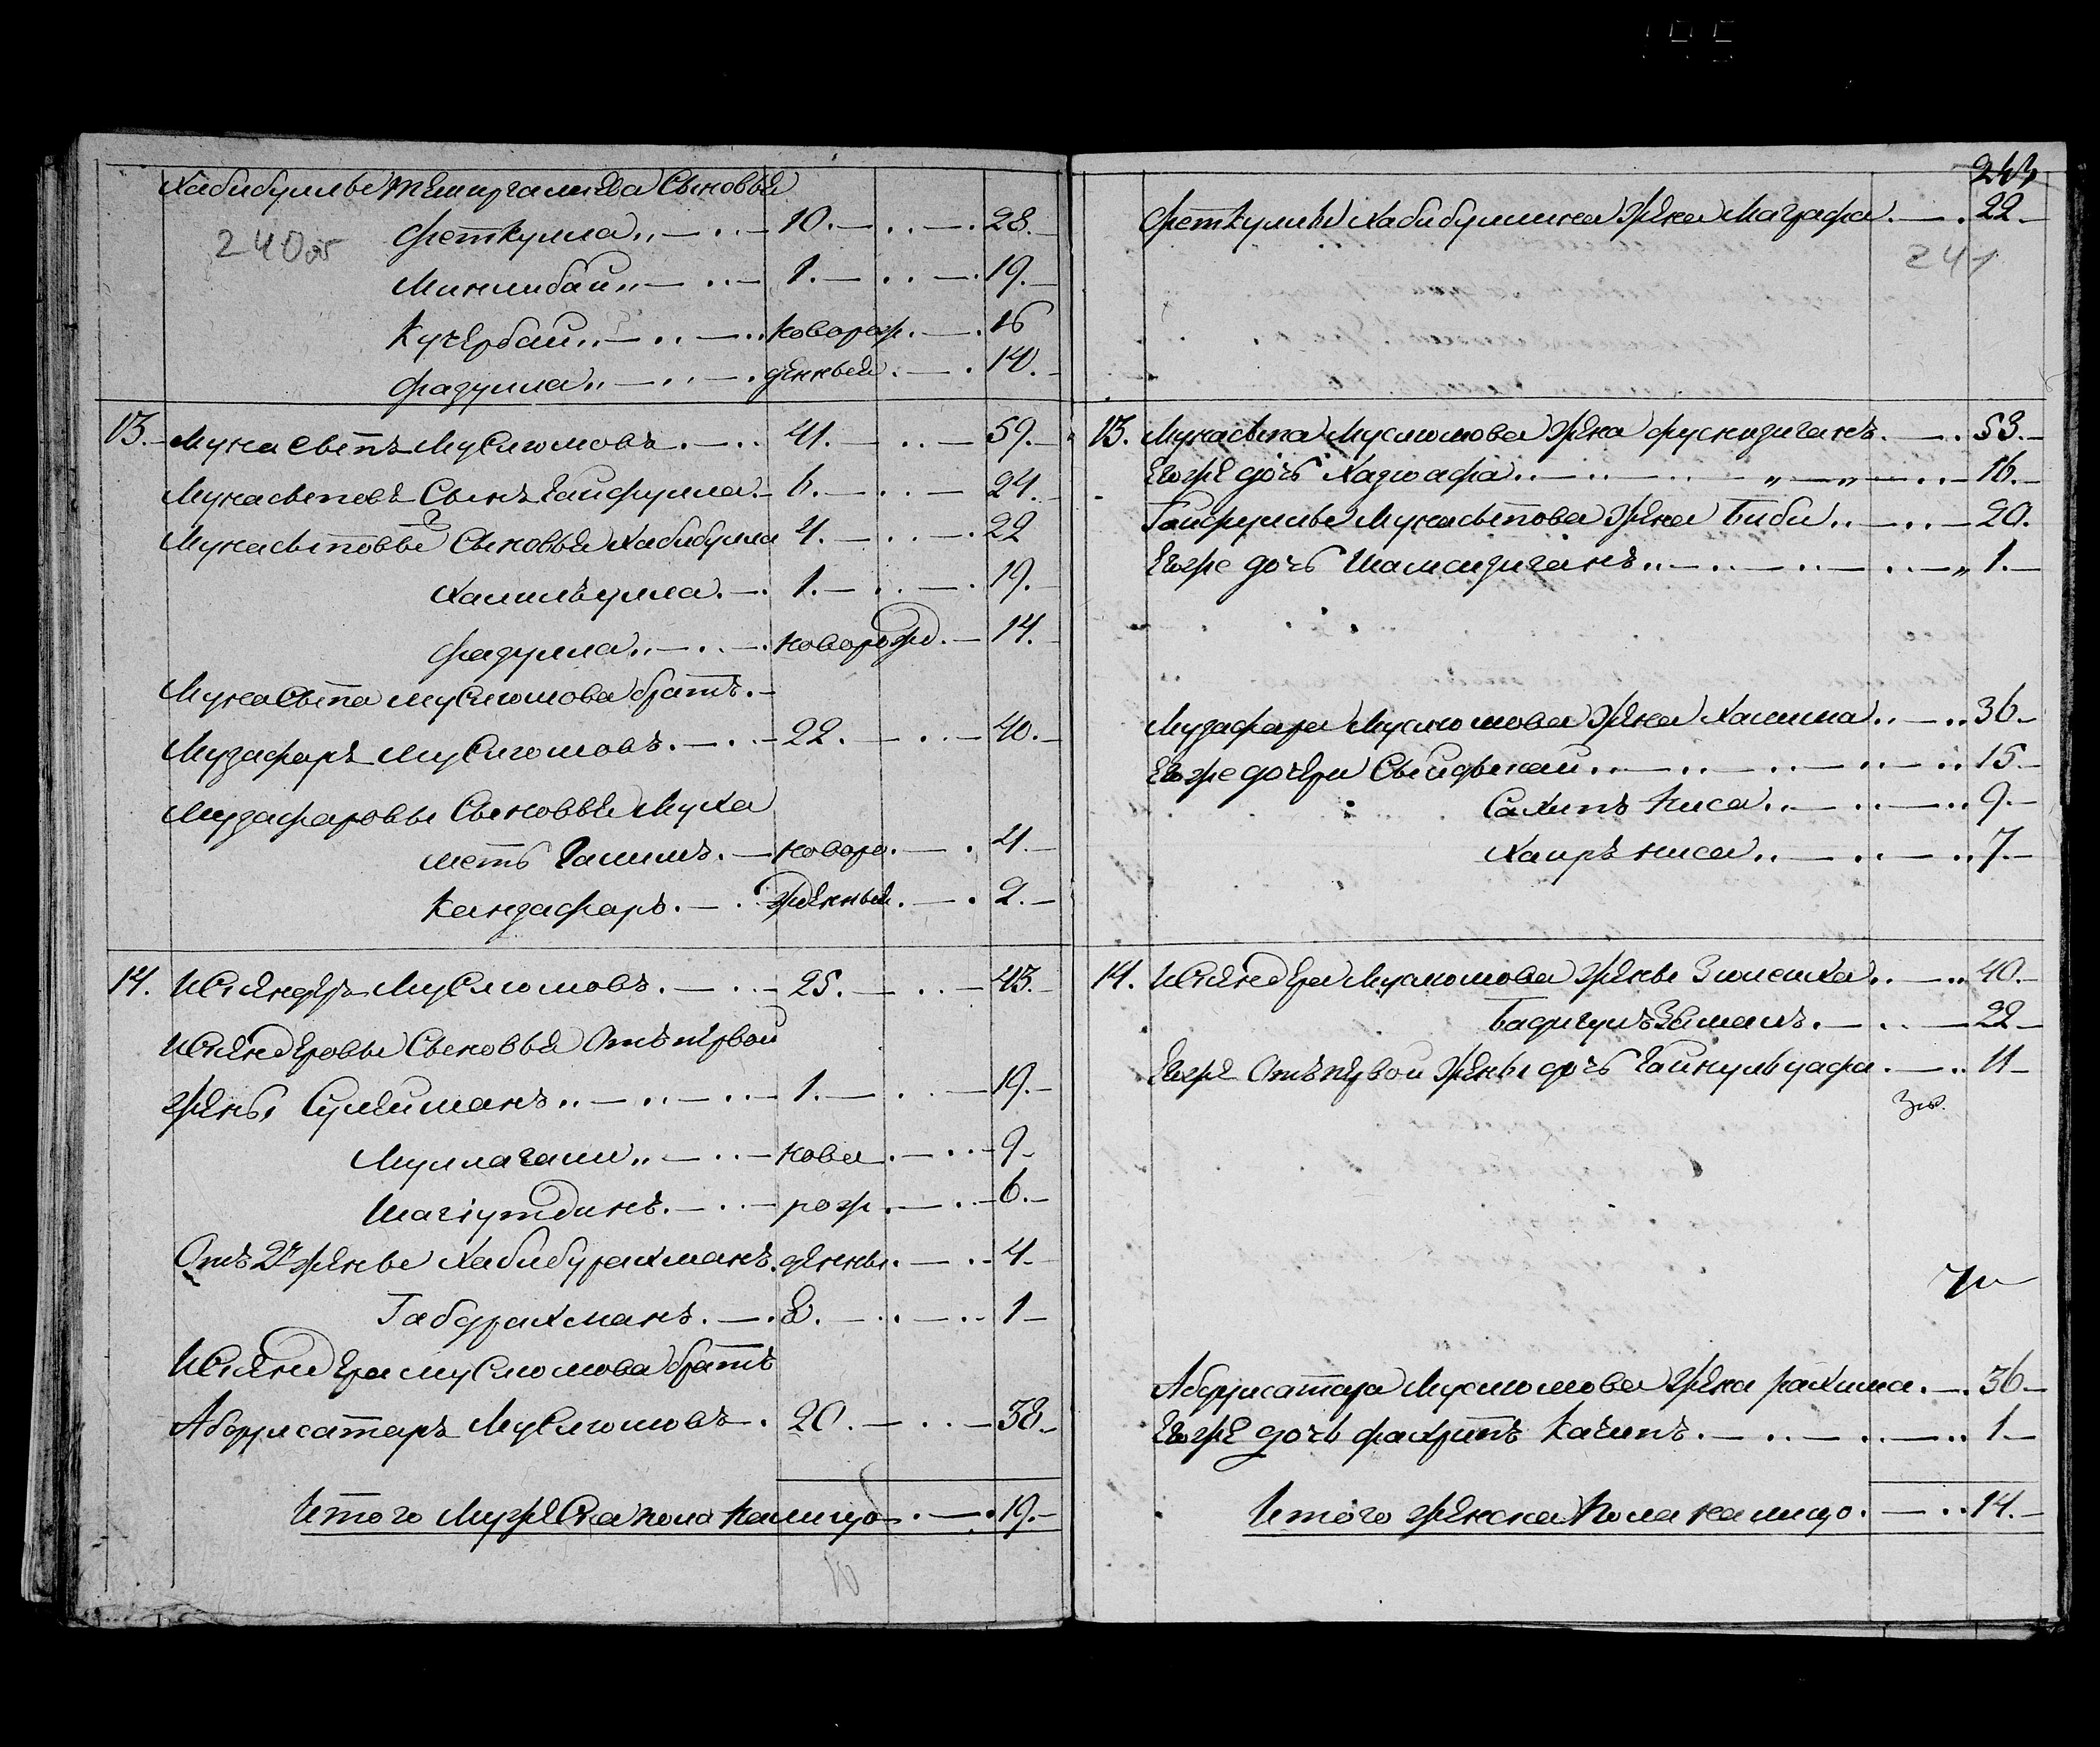 Хабибуллы Темиргалиева Сыновья
240об Феткулла 10. 28.
Миннибай 1. 19.
Кучербай новорож 16
Фадулла денный 14.
13. Мухаветъ Муслюмовъ 41. 59.
Мухаветовъ Сынъ Гайфулла 6. 24.
Мухаветовы Сыновья Хабибулла 4. 22
Халилъулла 1. 19.
Фадулла новорожд 14.
Мухавета Муслюмова братъ
Музафаръ Муслюмовъ 22. 40.
Музафаровы Сыновья Муха
меть Галимъ новоро 4.
Кандафаръ жденный 2.
14. Искендеръ Муслюмовъ 25. 43.
Искендеровы Сыновья Отъ первой
жены Сулейманъ 1. 19.
Муллагали ново 9
Шагіутдинъ рож 6.
Отъ 2й жены Хабибурахманъ денны 4.
Габдрахманъ е. 1
Искендера Муслюмова братъ
Абдулсатаръ Муслюмовъ 20. 38.
Итого Мужеска пола налицо 19.
241
Феткуллы Хабибуллина Жена Маграфа 22
241
13. Мухавета Муслюмова Жена 53.
Егоже дочь 16.
Гайфуллы Мухаветова Жена Биби 20.
Егоже дочь Шамсидиганъ 1.
Музафара Муслюмова Жена Халима 36
Егоже дочери 15
Сахипъ Ниса 9.
Хаиръ ниса 7.
14. Искендера Муслюмова Жены 40.
Бадигулъ Замалъ 22
Егоже Отъ первой Жены дочь 11
Абдулсатара Муслюмова Жена Рахима 36
Егоже дочь 1.
Итого женска Пола налицо 14.